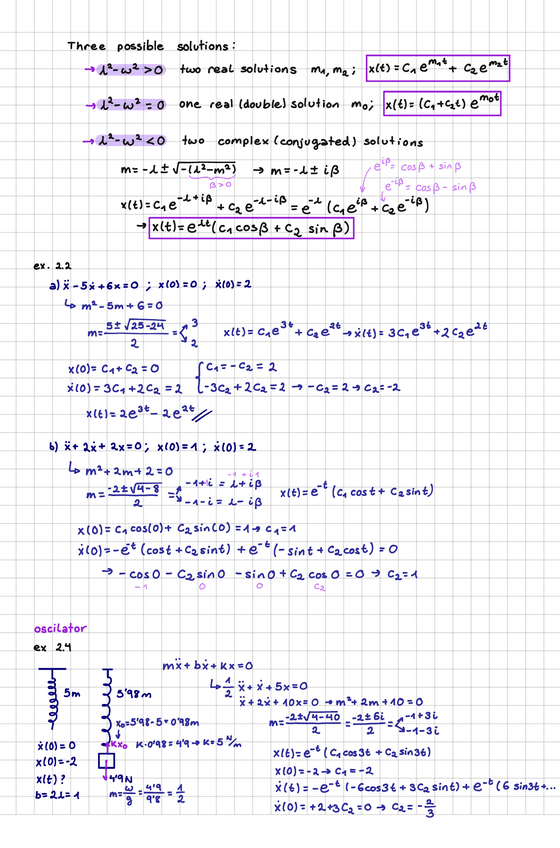 Three possible solutions:
→ λ²-ω² > 0 two real solutions m₁, m₂; x(t) = C₁ e^{m₁t} + C₂ e^{m₂t}
→ λ²-ω² = 0 one real (double) solution m₀; x(t) = (C₁+C₂t) e^{m₀t}
→ λ²-ω² < 0 two complex (conjugated) solutions
m = -λ ± √-(λ²-m²) → m = -λ ± iβ e^{iβ} = cosβ + sinβ
β>0 e^{-iβ} = cosβ - sinβ
x(t) = C₁ e^{-λ+iβ} + C₂ e^{-λ-iβ} = e^{-λ} (C₁e^{iβ} + C₂ e^{-iβ})
→ x(t) = e^{-λt} (C₁ cosβ + C₂ sinβ)
ex. 2.2
a) ẍ - 5ẋ + 6x = 0 ; x(0) = 0 ; ẋ(0) = 2
↳ m² - 5m + 6 = 0
m = (5 ± √25-24)/2 = 3, 2 x(t) = C₁ e^{3t} + C₂ e^{2t} → ẋ(t) = 3C₁ e^{3t} + 2C₂ e^{2t}
x(0) = C₁ + C₂ = 0 { C₁ = -C₂ = 2
ẋ(0) = 3C₁ + 2C₂ = 2 -3C₂ + 2C₂ = 2 → -C₂ = 2 → C₂ = -2
x(t) = 2e^{3t} - 2e^{2t} //
b) ẍ + 2ẋ + 2x = 0 ; x(0) = 1 ; ẋ(0) = 2
↳ m² + 2m + 2 = 0 -1 + i1
m = (-2 ± √4-8)/2 = -1+i = λ+iβ x(t) = e^{-t} (C₁ cost + C₂ sint)
-1-i = λ-iβ
x(0) = C₁ cos(0) + C₂ sin(0) = 1 → C₁ = 1
ẋ(0) = -e^{-t} (cost + C₂ sint) + e^{-t} (-sint + C₂ cost) = 0
→ -cos0 - C₂ sin0 - sin0 + C₂ cos0 = 0 → C₂ = 1
-1 0 0 C₂
oscilator
ex 2.4
mẍ + bẋ + kx = 0
↳ 1/2 ẍ + ẋ + 5x = 0
5m 5'98m
ẍ + 2ẋ + 10x = 0 → m² + 2m + 10 = 0
x₀ = 5'98 - 5 = 0'98m
m = (-2 ± √4-40)/2 = (-2 ± 6i)/2 = -1+3i, -1-3i
ẋ(0) = 0 kx₀ K·0'98 = 4'9 → K = 5 N/m
x(t) = e^{-t} (C₁ cos3t + C₂ sin3t)
x(0) = -2
x(0) = -2 → C₁ = -2
x(t)? 4'9N
ẋ(t) = -e^{-t} (-6cos3t + 3C₂ sint) + e^{-t} (6 sin3t+...
b = 2λ = 1 m = ω/g = 4'9/9'8 = 1/2
ẋ(0) = +2+3C₂ = 0 → C₂ = -2/3